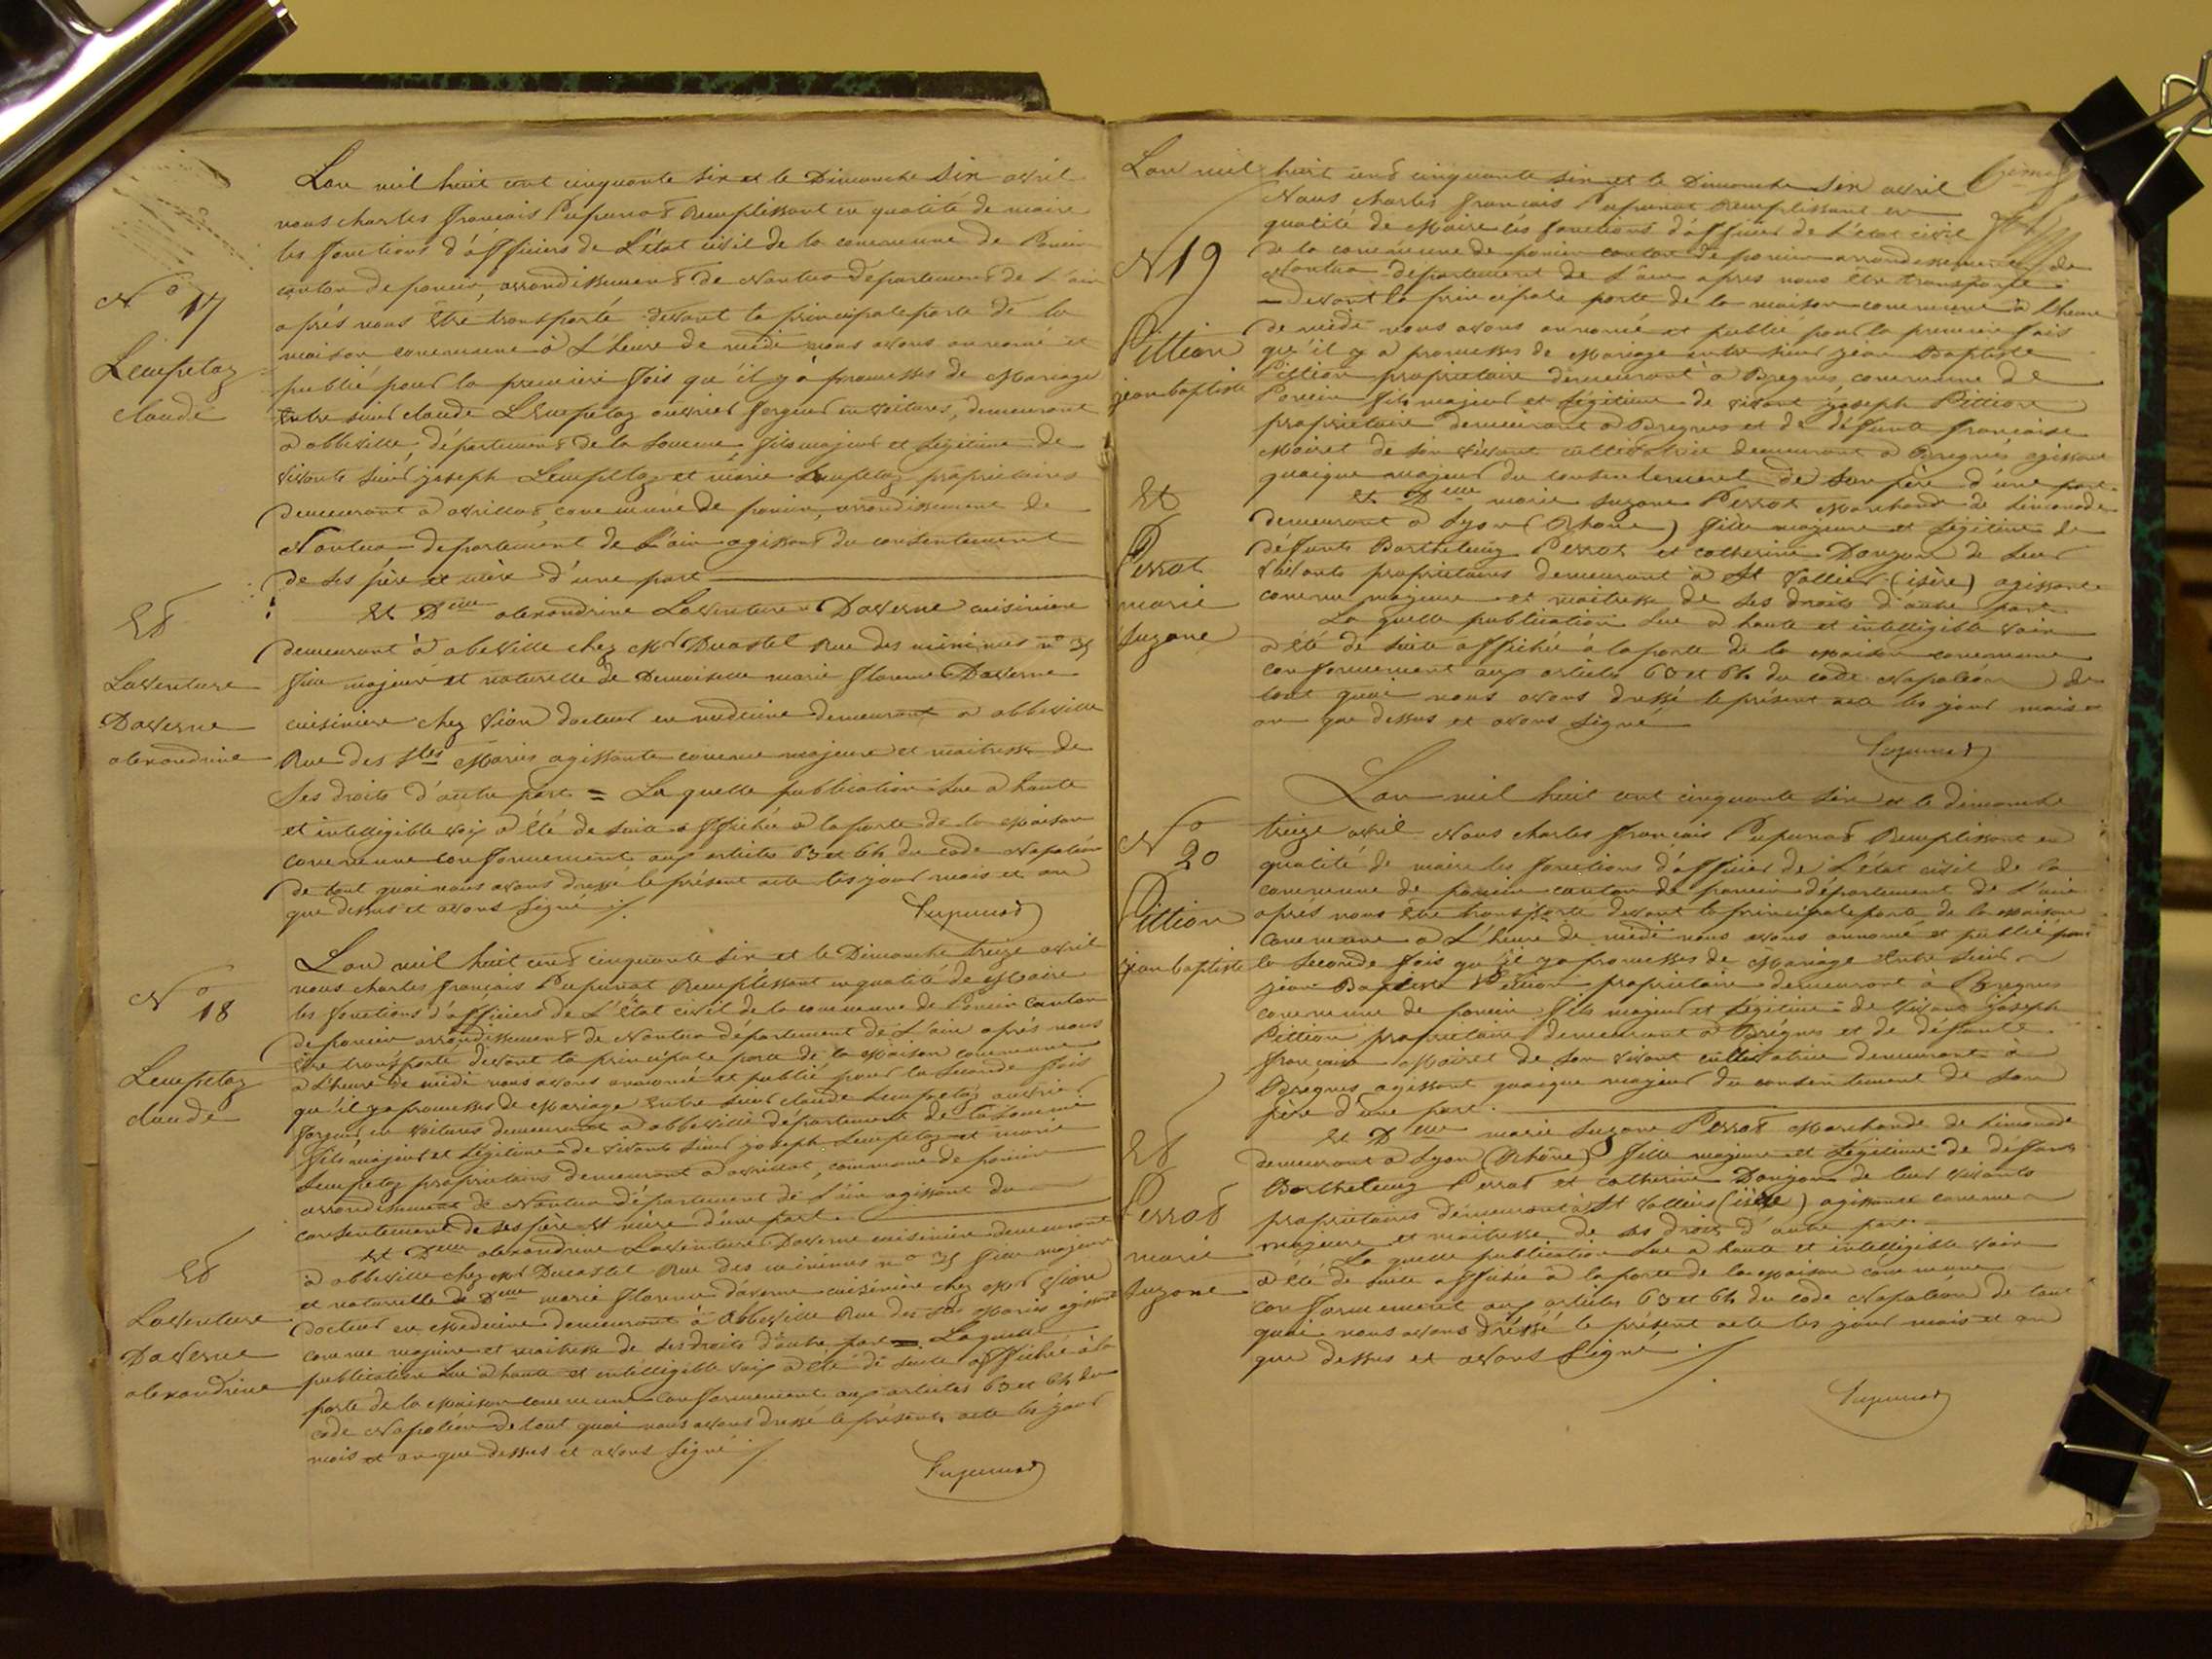 N° 17
Lempelaz
claude
Et
Laventure
Daverne
alexandrine
Lan mil huit cent cinquante six et le Dimanche six avril
nous charles français Pupunat Remplissant en qualité de maire
les fonctions d'officiers de L'état civil de la commune de Poncin
canton de poncin, arrondissement de Nantua département de L'ain
après nous être transporté devant la principale porte de la
maison commune à L'heure de midi nous avons annoncé et
publié pour la première fois qu'il y à promesses de Mariage
Entre sieur claude Lempelaz ouvrier forgeur en voitures, demeurant
a abbeville, département de la somme, fils majeur et légitime de
vivants sieur joseph Lempelaz et marie Lempelaz propriétaires
demeurant a avrillat, commune de poncin, arrondissement de
Nantua departement de L'ain agissant du consentement
de ses père et mère d'une part
Et Dlle alexandrine Laventure Daverne cuisiniere
demeurant à abeville chez Mr Ducastel Rue des minimes n° 35
fille majeure et naturelle de Demoiselle marie florence Daverne
cuisiniere chez docteur en medecine demeurant a abbeville
Rue des Stes Maries agissante comme majeure et maitresse de
ses droits d'autre part = La quelle publication lue a haute
et intelligible voix a été de suite affichée a la porte de la Maison
commune conformement aux articles 63 et 64 du code Napoléon
de tout quoi nous avons dressé le présent acte les jour mois et an
que dessus et avons signé ./.
Pupunat
N° 18
Lempelaz
claude
Et
Laventure
Daverne
alexandrine
Lan mil huit cent cinquante six et le Dimanche treize avril
nous charles français Pupunat Remplissant en qualité de Maire
les fonctions d'officiers de L'état civil de la commune de Poncin canton
de poncin arrondissement de Nantua département de L'ain après nous
être transporté devant la principale porte de la Maison commune
a L'heure de midi nous avons annoncé et publié pour la seconde fois
qu'il y a promesses de Mariage Entre sieur claude Lempelaz ouvrier
forgeur en voitures demeurant a abbeville département de la somme
fils majeur et légitime de vivants sieur joseph Lempelaz et marie
Lempelaz propriétaires demeurant a avrillat, commune de poncin
arrondissement de Nantua département de L'ain agissant du
consentement de ses père et mère d'une part.
Et Dlle alexandrine Laventure Daverne cuisiniere demeurant
à abbeville chez Mr Ducastel Rue des minimes n° 35 fille majeure
et naturelle de Dlle marie florence daverne cuisiniere chez Mr
docteur en Medecine demeurant à abbeville Rue des Stes Maries agissant
comme majeure et maitresse de ses droits d'autre part = Laquelle
publication lue a haute et intelligible voix a été de suite affichée à la
porte de la Maison commune conformement aux articles 63 et 64 du
code Napoléon de tout quoi nous avons dressé le présent acte les jour
mois et an que dessus et avons signé ./.
Pupunat
N 19
Pittion
jean baptiste
Et
Perrot
marie
Suzane
Lan mil huit cent cinquante six et le Dimanche six avril
Nous charles francais Pupunat Remplissant en
qualité de Maire les fonctions d'officier de L'état civil
de la commune de poncin canton de poncin arrondissement de
Nantua departement de L'ain apres nous être transporté
devant la principale porte de la maison commune a L'heure
de midi nous avons annoncé et publié pour la premiere fois
qu'il y a promesses de Mariage entre sieur jean Baptiste
Pittion propriétaire demeurant a Bregnes commune de
Poncin fils majeur et légitime de vivant joseph Pittion
propriétaire demeurant a Bregnes et de défunte françoise
Moiret de son vivant cultivatrice demeurant a Bregnes agissant
quoique majeur du consentement de son père d'une part.
et Dlle marie suzane Perrot Marchande de Limonade
demeurant a Lyon (Rhone) fille majeure et légitime de
défunts Barthelemy Perrot et catherine Donjon de leur
vivants propriétaires demeurant à St Vallier (isère) agissante
comme majeure et maitresse de ses droits d'autre part.
La quelle publication lue a haute et intelligible voix
a été de suite affichée à la porte de la Maison commune
conformement aux articles 63 et 64 du code Napoléon de
tout quoi nous avons dressé le présent acte les jour mois et
an que dessus et avons signé
Pupunat
N° 20
Pittion
jean baptiste
Et
Perrot
marie
Suzane
Lan mil huit cent cinquante six et le dimanche
treize avril Nous charles français Pupunat Remplissant en
qualité de maire les fonctions d'officier de L'état civil de la
commune de poncin canton de poncin département de L'ain
après nous être transporté devant la principale porte de la Maison
commune a L'heure de midi nous avons annoncé et publié pour
la seconde fois qu'il y a promesses de Mariage Entre sieur
jean Baptiste Pittion propriétaire demeurant à Bregnes
commune de poncin fils majeur et légitime de vivant joseph
Pittion propriétaire demeurant a Brégnes et de défunte
françoise Moiret de son vivant cultivatrice demeurant à
Bregnes agissant quoique majeur du consentement de son
père d'une part.
Et Dlle marie suzane Perrot Marchande de Limonade
demeurant a Lyon (Rhône) fille majeure et légitime de défunts
Barthelemy Perrot et catherine Donjon de leur vivants
propriétaires demeurant à St Vallier (isère) agissante comme
majeure et maitresse de ses droits d'autre part.
La quelle publication lue a haute et intelligible voix
a été de suite affichée à la porte de la Maison commune
conformement aux articles 63 et 64 du code Napoléon de tout
quoi nous avons dréssé le présent acte les jour mois et an
que dessus et avons signé ./.
Pupunat